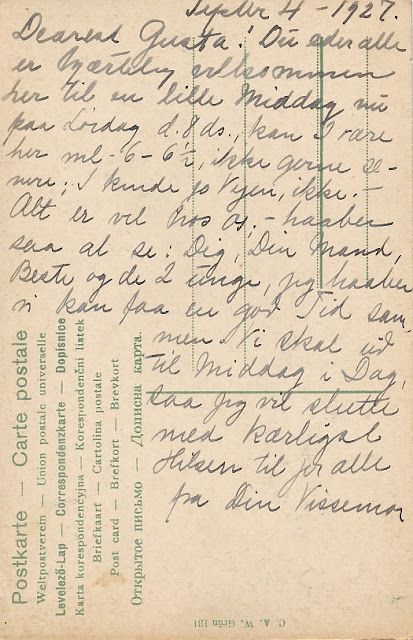 4 - 1927.
Dearest Gusta! Du eder alle
er hjærtelig velkommen
her til en lille Middag nu
paa Lørdag d. 8 ds., kan I være
her ml - 6 - 6½, ikke gerne se-
nere; I kunde jo Vejen, ikke. -
Alt er vel hos os, - haaber
saa at se: Dig, Din Mand,
Beste og de 2 unge, jeg haaber
vi kan faa en god Tid sam-
men. Vi skal ud
til Middag i Dag,
saa jeg vil slutte
med kærligst
Hilsen til jer alle
fra Din Vissemor
Postkarte — Carte postale
Weltpostverein — Union postale universelle
Levelező-Lap — Correspondenzkarte — Dopisnice
Karta korespondencyjna — Korespondenční lístek
Briefkaart — Cartolina postale
Post card — Brefkort — Brevkort
Открытое письмо — Дописна карта
C. A. W. Grün 131